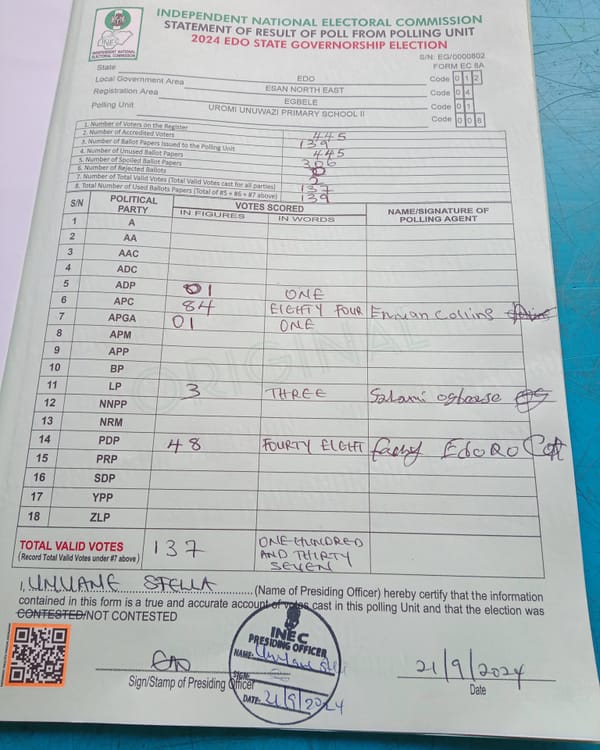 INDEPENDENT NATIONAL ELECTORAL COMMISSION
STATEMENT OF RESULT OF POLL FROM POLLING UNIT
2024 EDO STATE GOVERNORSHIP ELECTION
INEC
INDEPENDENT NATIONAL ELECTORAL COMMISSION
S/N: EG/0000802
FORM EC 8A
State EDO Code 0 1 2
Local Government Area ESAN NORTH EAST Code 0 4
Registration Area EGBELE Code 0 1
Polling Unit UROMI UNUWAZI PRIMARY SCHOOL II Code 0 0 8
1. Number of Voters on the Register 445
2. Number of Accredited Voters 139
3. Number of Ballot Papers Issued to the Polling Unit 445
4. Number of Unused Ballot Papers 306
5. Number of Spoiled Ballot Papers 0
6. Number of Rejected Ballots 2
7. Number of Total Valid Votes (Total Valid Votes cast for all parties) 137
8. Total Number of Used Ballot Papers (Total of #5 + #6 + #7 above) 139
S/N POLITICAL PARTY VOTES SCORED NAME/SIGNATURE OF POLLING AGENT
IN FIGURES IN WORDS
1 A
2 AA
3 AAC
4 ADC
5 ADP 01 ONE
6 APC 84 EIGHTY FOUR Enuuan Collins
7 APGA 01 ONE
8 APM
9 APP
10 BP
11 LP 3 THREE Salami
12 NNPP
13 NRM
14 PDP 48 FOURTY EIGHT EDORO
15 PRP
16 SDP
17 YPP
18 ZLP
ORIGINAL
TOTAL VALID VOTES 137 ONE HUNDRED
(Record Total Valid Votes under #7 above) AND THIRTY
SEVEN
I, UNUANE STELLA (Name of Presiding Officer) hereby certify that the information
contained in this form is a true and accurate account of votes cast in this polling Unit and that the election was
CONTESTED/NOT CONTESTED
INEC
PRESIDING OFFICER
NAME: Unuane
SIGN:
DATE: 21/9/2024
Sign/Stamp of Presiding Officer
21/9/2024
Date